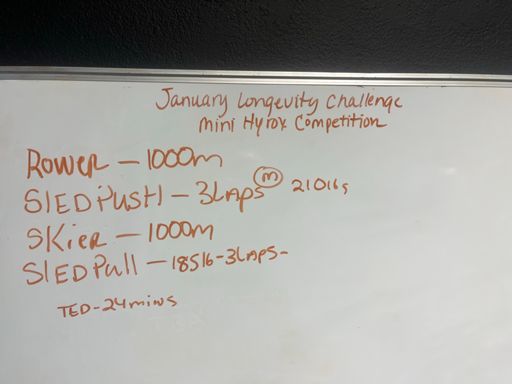 January Longevity Challenge
Mini Hyrox Competition
Rower - 1000m
SlED PUSH - 3LAPS (m) 210lbs
SKier - 1000m
SlED Pull - 185lb - 3LAPS -
TED - 24 mins